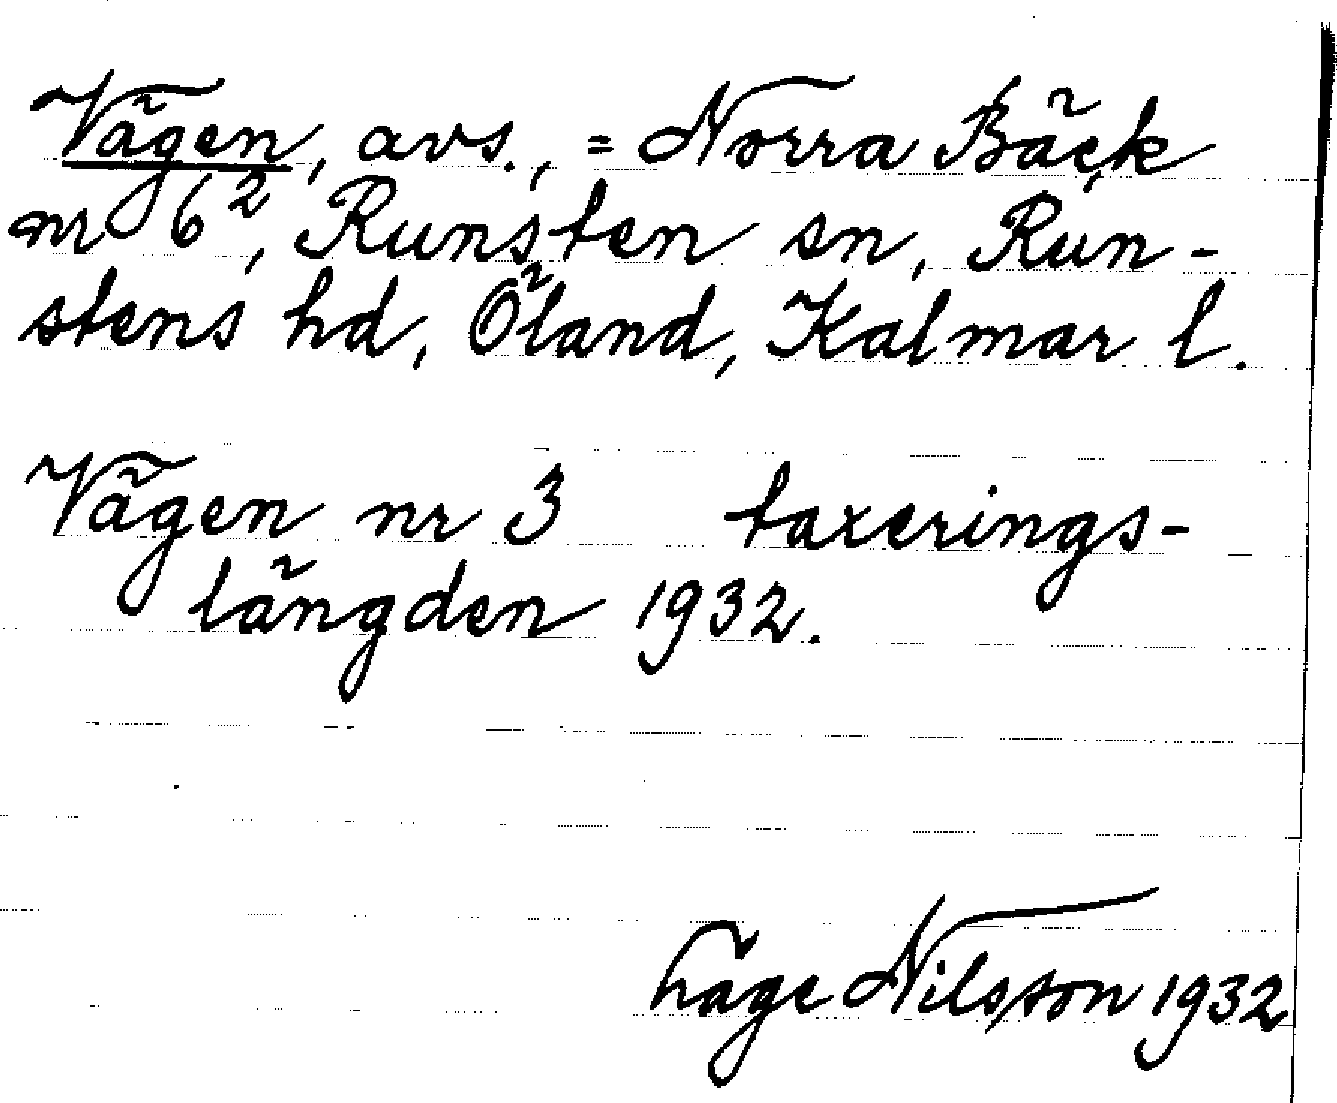 Vägen, avs., = Norra Bäck
nr 6², Runsten sn, Run-
stens hd, Öland, Kalmar l.
Vägen nr 3 taxerings-
längden 1932.
Håge Nilsson 1932